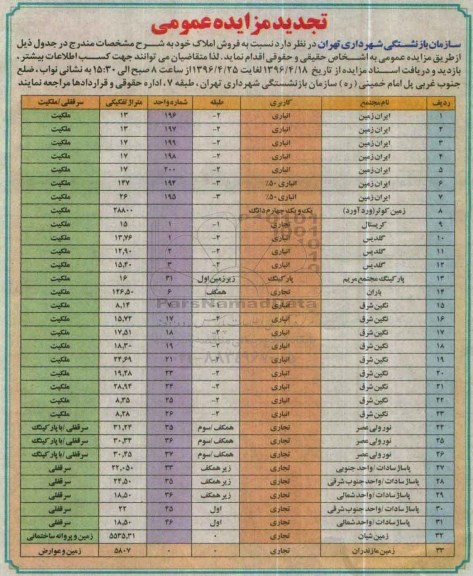 تجدید مزایده عمومی
سازمان بازنشستگی شهرداری تهران در نظر دارد نسبت به فروش املاک خود به شرح مشخصات مندرج در جدول ذیل
از طریق مزایده عمومی به اشخاص حقیقی و حقوقی اقدام نماید. لذا متقاضیان می توانند جهت کسب اطلاعات بیشتر،
بازدید و دریافت اسناد مزایده از تاریخ ۱۳۹۶/۴/۱۸ لغایت ۱۳۹۶/۴/۲۵ از ساعت ۸ صبح الی ۱۵:۳۰ به نشانی نواب، ضلع
جنوب غربی پل امام خمینی (ره) سازمان بازنشستگی شهرداری تهران، طبقه ۷، اداره حقوقی و قراردادها مراجعه نمایند
ردیف نام مجتمع کاربری طبقه شماره واحد متراژ تفکیکی سرقفلی/ملکیت
۱ ایران زمین انباری ۲- ۱۹۶ ۱۳ ملکیت
۲ ایران زمین انباری ۲- ۱۹۷ ۱۳ ملکیت
۳ ایران زمین انباری ۲- ۱۹۹ ۱۷ ملکیت
۴ ایران زمین انباری ۲- ۱۹۸ ۱۷ ملکیت
۵ ایران زمین انباری ۲- ۲۰۰ ۱۷ ملکیت
۶ ایران زمین انباری ۵۰٪ ۳- ۱۹۴ ۱۴۷ ملکیت
۷ ایران زمین انباری ۵۰٪ ۳- ۱۹۵ ۲۶ ملکیت
۸ زمین کوثر(ورد آورد) یک و یک چهارم دانگ ۲۸۸۰۰ ملکیت
۹ کریستال تجاری ۱- ۱ ۱۵ ملکیت
۱۰ گلدیس انباری ۲- ۱ ۱۳,۷۶ ملکیت
۱۱ گلدیس انباری ۲- ۲ ۱۲,۹۰ ملکیت
۱۲ گلدیس انباری ۲- ۳ ۱۵,۴۰ ملکیت
۱۳ پارکینگ مجتمع مریم پارکینگ زیرزمین اول ۳۱ ۱۶ ملکیت
۱۴ باران تجاری همکف ۶ ۱۴۶,۵۰ ملکیت
۱۵ نگین شرق انباری ۸,۱۴ ملکیت
۱۶ نگین شرق انباری ۲- ۱۷ ۱۵,۷۲ ملکیت
۱۷ نگین شرق انباری ۲- ۱۸ ۱۷,۵۱ ملکیت
۱۸ نگین شرق انباری ۲- ۱۹ ۱۸,۳۰ ملکیت
۱۹ نگین شرق انباری ۲- ۲۱ ۲۴,۶۹ ملکیت
۲۰ نگین شرق انباری ۲- ۲۳ ۱۹,۴۸ ملکیت
۲۱ نگین شرق انباری ۲- ۲۴ ۲۸,۹۴ ملکیت
۲۲ نگین شرق انباری ۲- ۲۵ ۸,۳۵ ملکیت
۲۳ نگین شرق انباری ۲- ۲۶ ۸,۲۸ ملکیت
۲۴ نور ولی عصر تجاری همکف/سوم ۳۵ ۳۱,۲۳ سرقفلی/با پارکینگ
۲۵ نور ولی عصر تجاری همکف/سوم ۳۶ ۳۰,۳۴ سرقفلی/با پارکینگ
۲۶ نور ولی عصر تجاری همکف/سوم ۳۷ ۳۰,۴۵ سرقفلی/با پارکینگ
۲۷ پاساژ سادات/واحد جنوبی تجاری زیر همکف ۳۳ ۲۲,۰۵۰ سرقفلی
۲۸ پاساژ سادات/واحد جنوب شرقی تجاری زیر همکف ۳۵ ۲۳,۵۰ سرقفلی
۲۹ پاساژ سادات/واحد شمالی تجاری زیر همکف ۳۶ ۱۸,۵۰ سرقفلی
۳۰ پاساژ سادات/واحد جنوب شرقی تجاری اول ۲۵ ۲۲ سرقفلی
۳۱ پاساژ سادات/واحد شمالی تجاری اول ۲۶ ۱۸,۵۰ سرقفلی
۳۲ زمین شیان تجاری ۰ ۵۵۳۵,۳۱ زمین و پروانه ساختمانی
۳۳ زمین مازندران تجاری ۰ ۰ ۵۸۰۷ زمین و عوارض
ParsNamadData